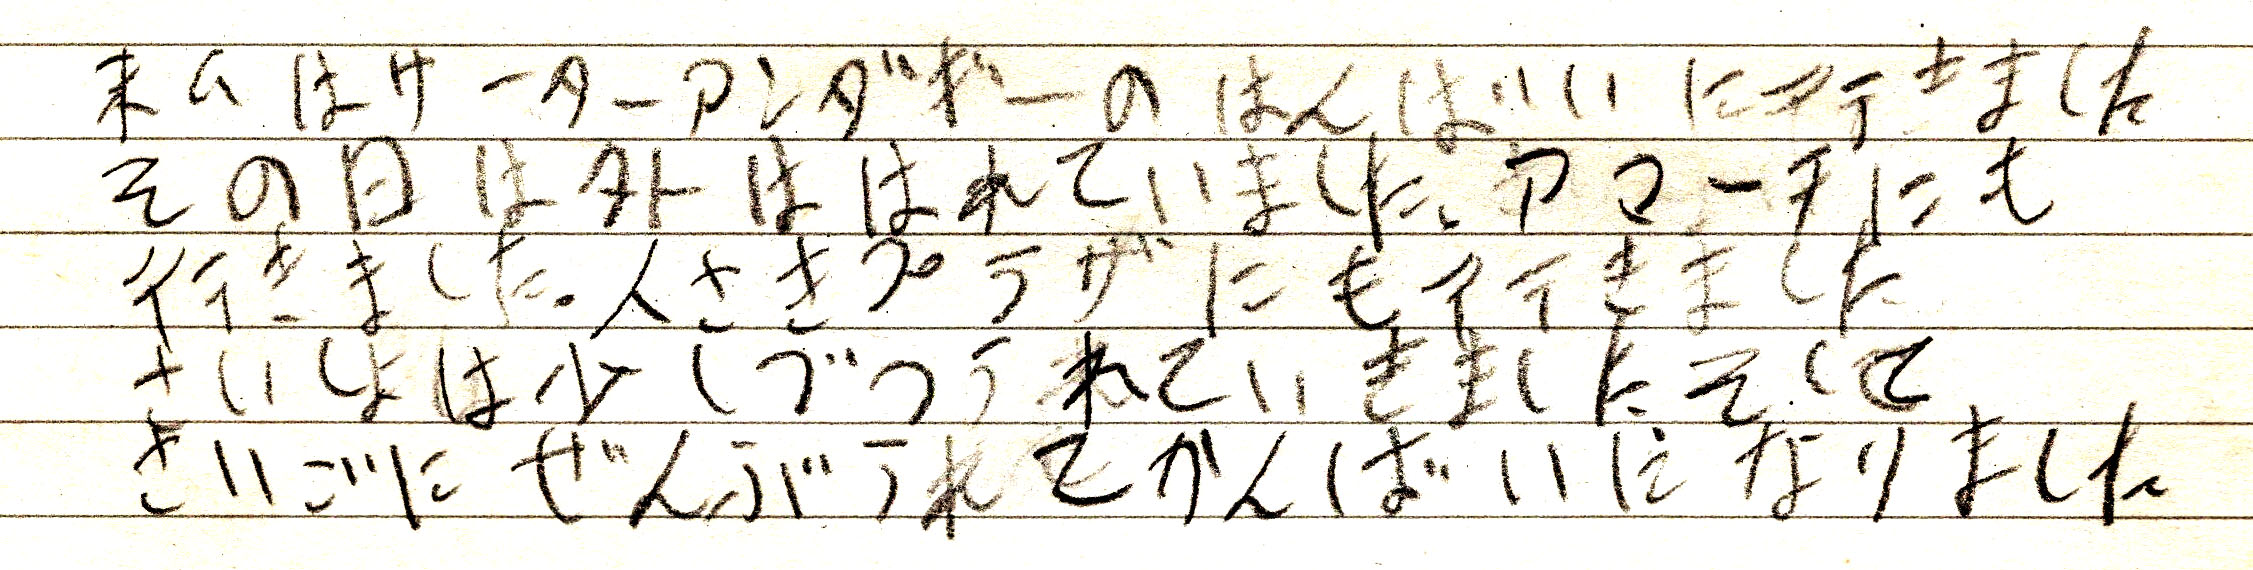 私はサーターアンダギーのはんばいに行きました
その日は外ははれていました。アコーデにも
行きました。人さきプラザにも行きました
さいしょは少しづつうれていきましたそして
さいごにぜんぶうれてかんばいになりました